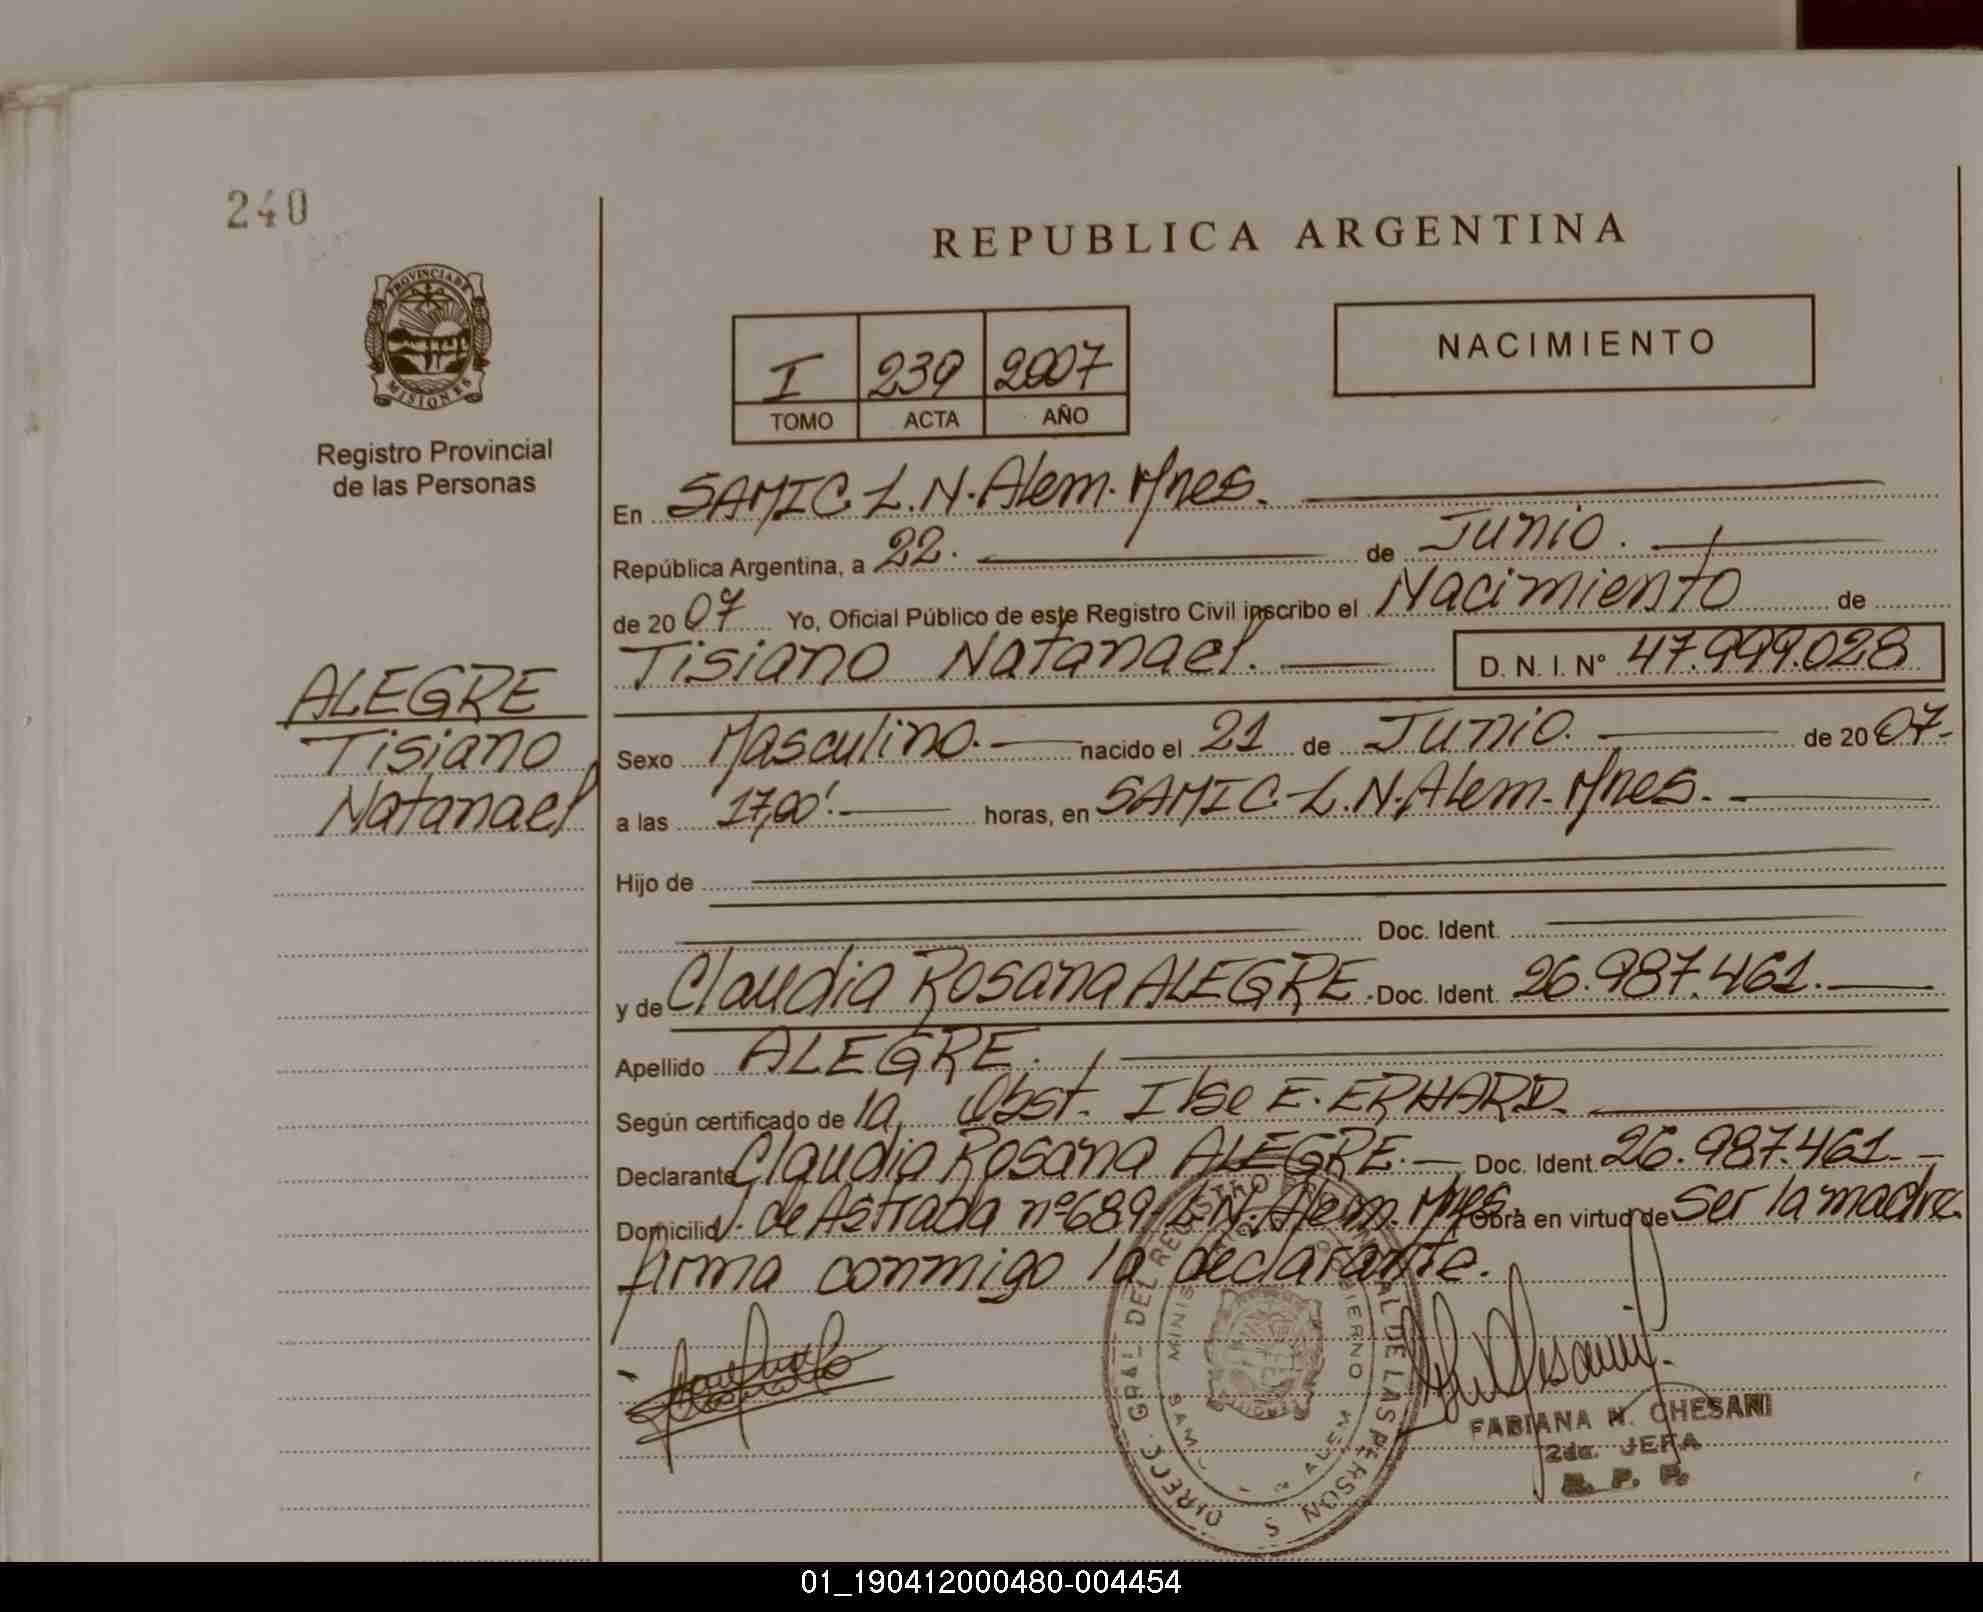 240
REPUBLICA ARGENTINA
PROVINCIA DE
MISIONES
Registro Provincial
de las Personas
I 239 2007
TOMO ACTA AÑO
NACIMIENTO
En SAMIC L.N. Alem. Mnes.
República Argentina, a 22. de Junio.
de 2007 Yo, Oficial Público de este Registro Civil inscribo el Nacimiento de
Tisiano Natanael. D. N. I. N° 47.999.028
ALEGRE
Tisiano
Natanael
Sexo Masculino. nacido el 21 de Junio. de 2007-
a las 17,00'. horas, en SAMIC-L.N. Alem- Mnes.
Hijo de
Doc. Ident.
y de Claudia Rosana ALEGRE. Doc. Ident. 26.987.461.
Apellido ALEGRE.
Según certificado de la Obst. Ilse E. ERHARD.
Declarante Claudia Rosana ALEGRE. Doc. Ident. 26.987.461.
Domicilio J. de Astrada nº689-L.N. Alem. Mnes. Obra en virtud de Ser la madre.
firma conmigo la declarante.
DIRECC. GRAL. DEL REGISTRO DE LAS PERSON S
FABIANA N. CHESANI
2da. JEFA
R. P. P.
01_190412000480-004454